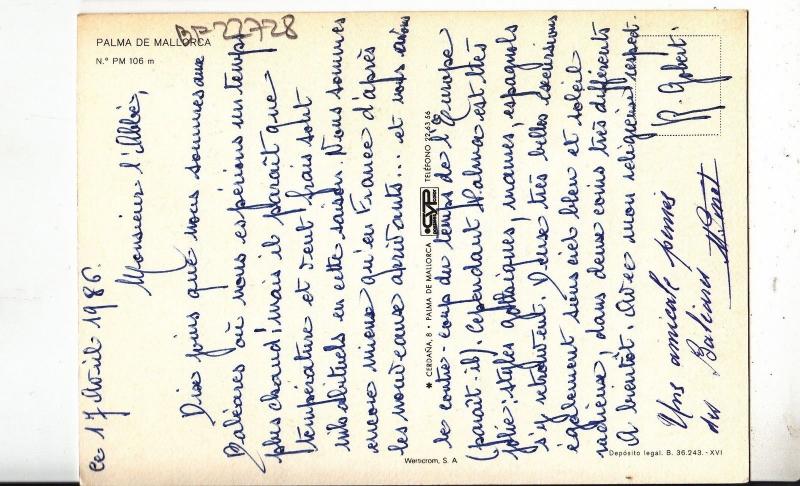 BF-22728
PALMA DE MALLORCA
N.º PM 106 m
ce 17 Avril 1986.
Monsieur l'Abbé,
Dix jours que nous sommes aux
Baléares où nous espérions un temps
plus chaud, mais il paraît que
température et vent frais sont
inhabituels en cette saison. Nous sommes
encore mieux qu'en France d'après
les nouveaux arrivants... et nous avons
le contre-coup du temps de l'Europe
(paraît-il). Cependant Palma est très
jolie: styles gothiques, maures, espagnols
s'y retrouvent. Deux très belles excursions
également sous ciel bleu et soleil
radieux, dans deux coins très différents
A bientôt. Avec mon religieux respect.
R. Gobert.
Une amicale pensée
des Baléares
✱ CERDAÑA, 8 • PALMA DE MALLORCA
CYP
TELÉFONO 22 63 56
Werticrom, S. A.
Depósito legal. B. 36.243.-XVI